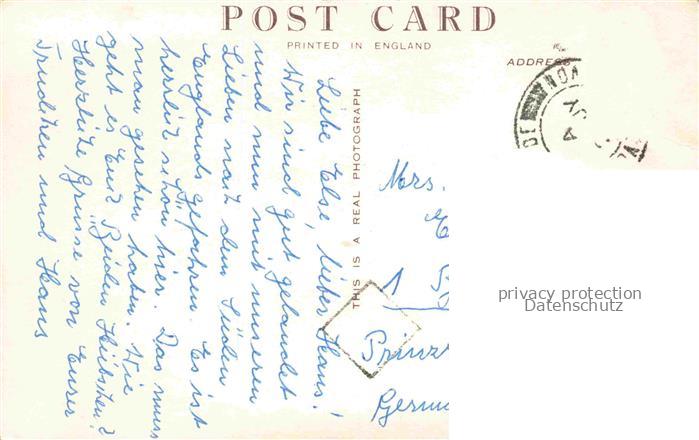 POST CARD
PRINTED IN ENGLAND
ADDRESS
THIS IS A REAL PHOTOGRAPH
Liebe Else, lieber Hans!
Wir sind gut gelandet
und nun mit unseren
Lieben nach dem Süden
Englands gefahren. Es ist
herrlich schön hier. Das muss
man gesehen haben. Wie
geht es Euch Beiden Hübschen?
Herzliche Grüsse von Eurer
Trudchen und Hans
Mrs.
1
Prinz
Germ
privacy protection
Datenschutz